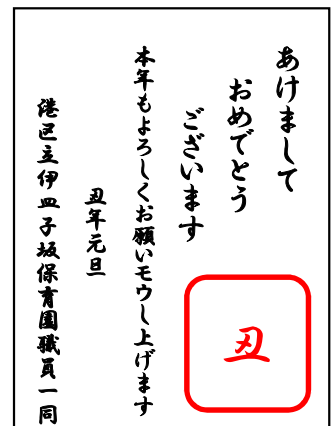 あけまして
おめでとう
ございます
本年もよろしくお願いモウし上げます
丑年元旦
港区立伊皿子坂保育園職員一同
丑